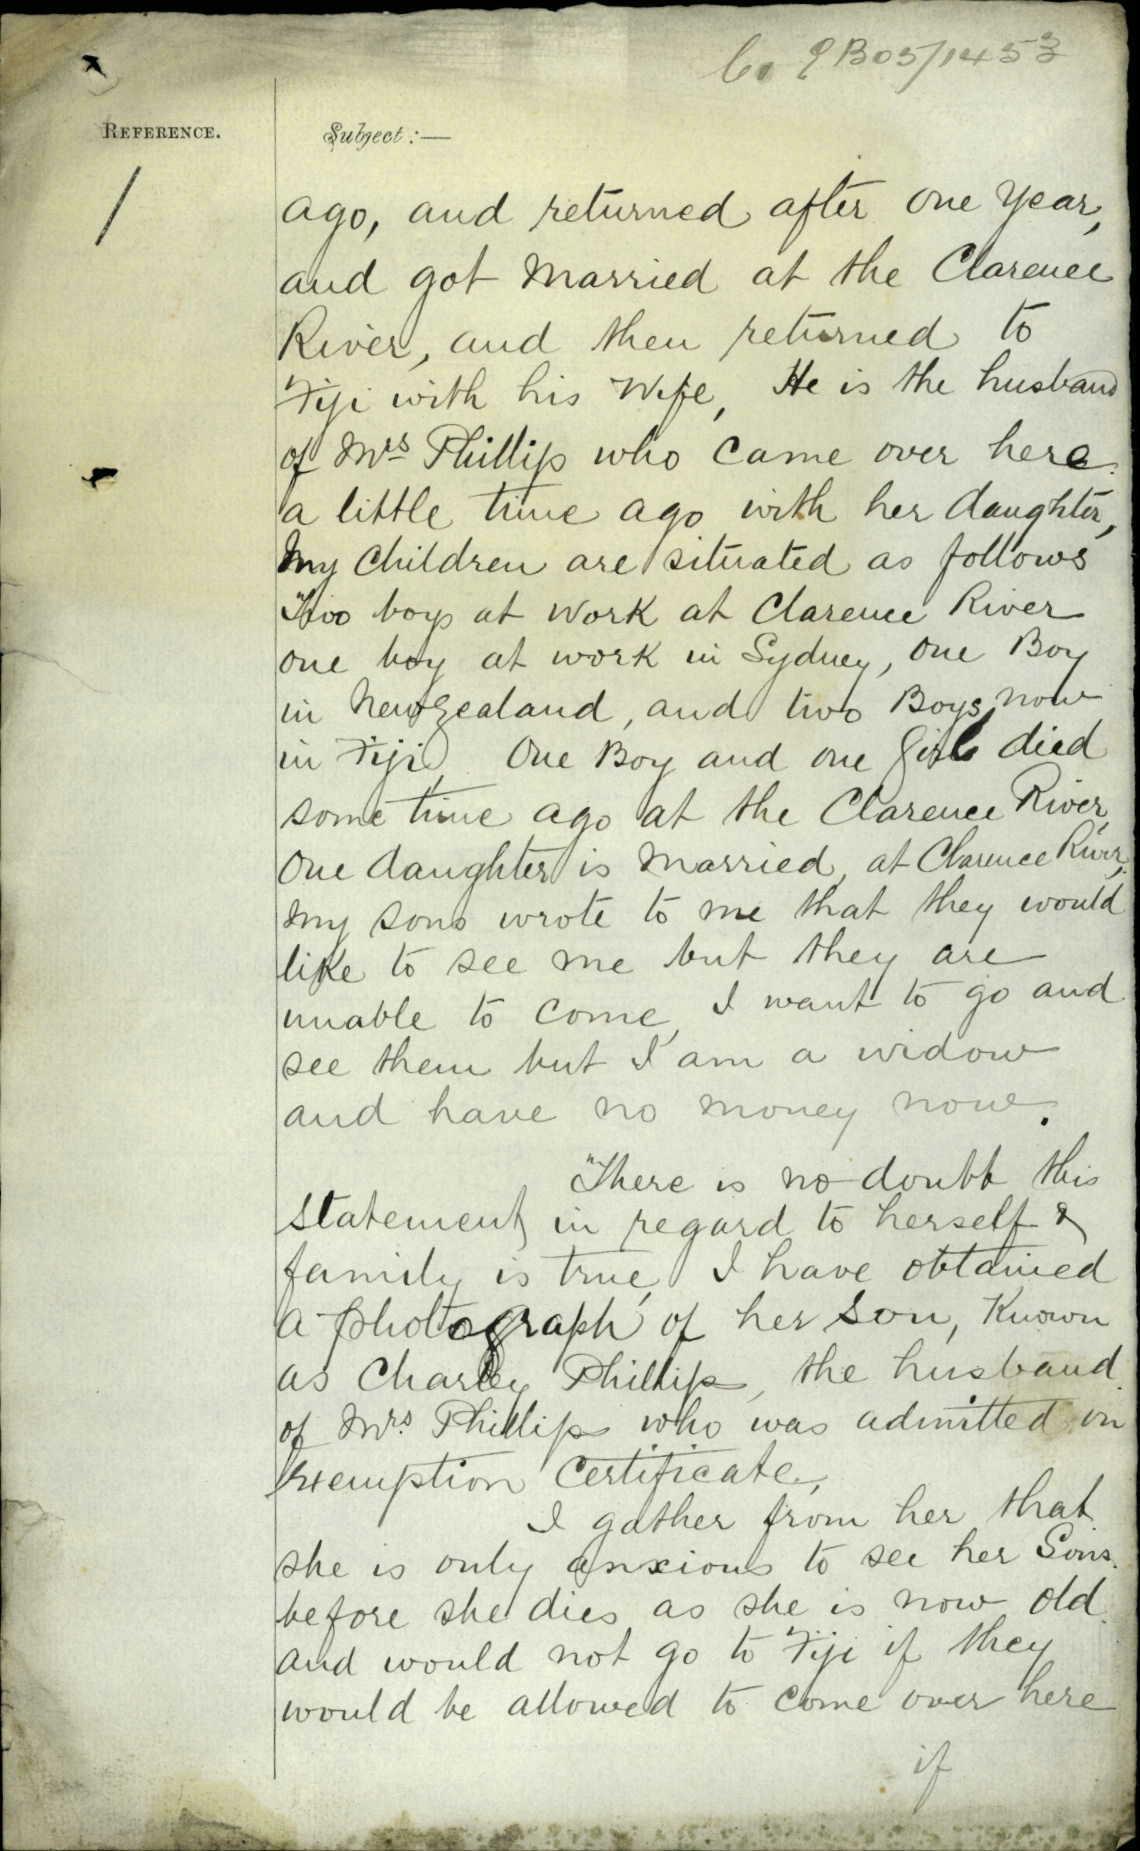 B05/1453
REFERENCE.
Subject:—
ago, and returned after one year,
and got married at the Clarence
River, and then returned to
Fiji with his Wife, He is the husband
of Mrs Phillip who came over here
a little time ago with her daughter,
My Children are situated as follows
Two boys at work at Clarence River
one boy at work in Sydney, one Boy
in New Zealand, and two Boys now
in Fiji, One Boy and one Girl died
some time ago at the Clarence River,
One daughter is married, at Clarence River,
my sons wrote to me that they would
like to see me but they are
unable to come, I want to go and
see them but I am a widow
and have no money now.
There is no doubt this
statement in regard to herself &
family is true, I have obtained
a photograph of her son, Known
as Charley Phillip, the husband
of Mrs. Phillip who was admitted on
Exemption Certificate,
I gather from her that
she is only anxious to see her Sons
before she dies as she is now old
and would not go to Fiji if they
would be allowed to come over here
if